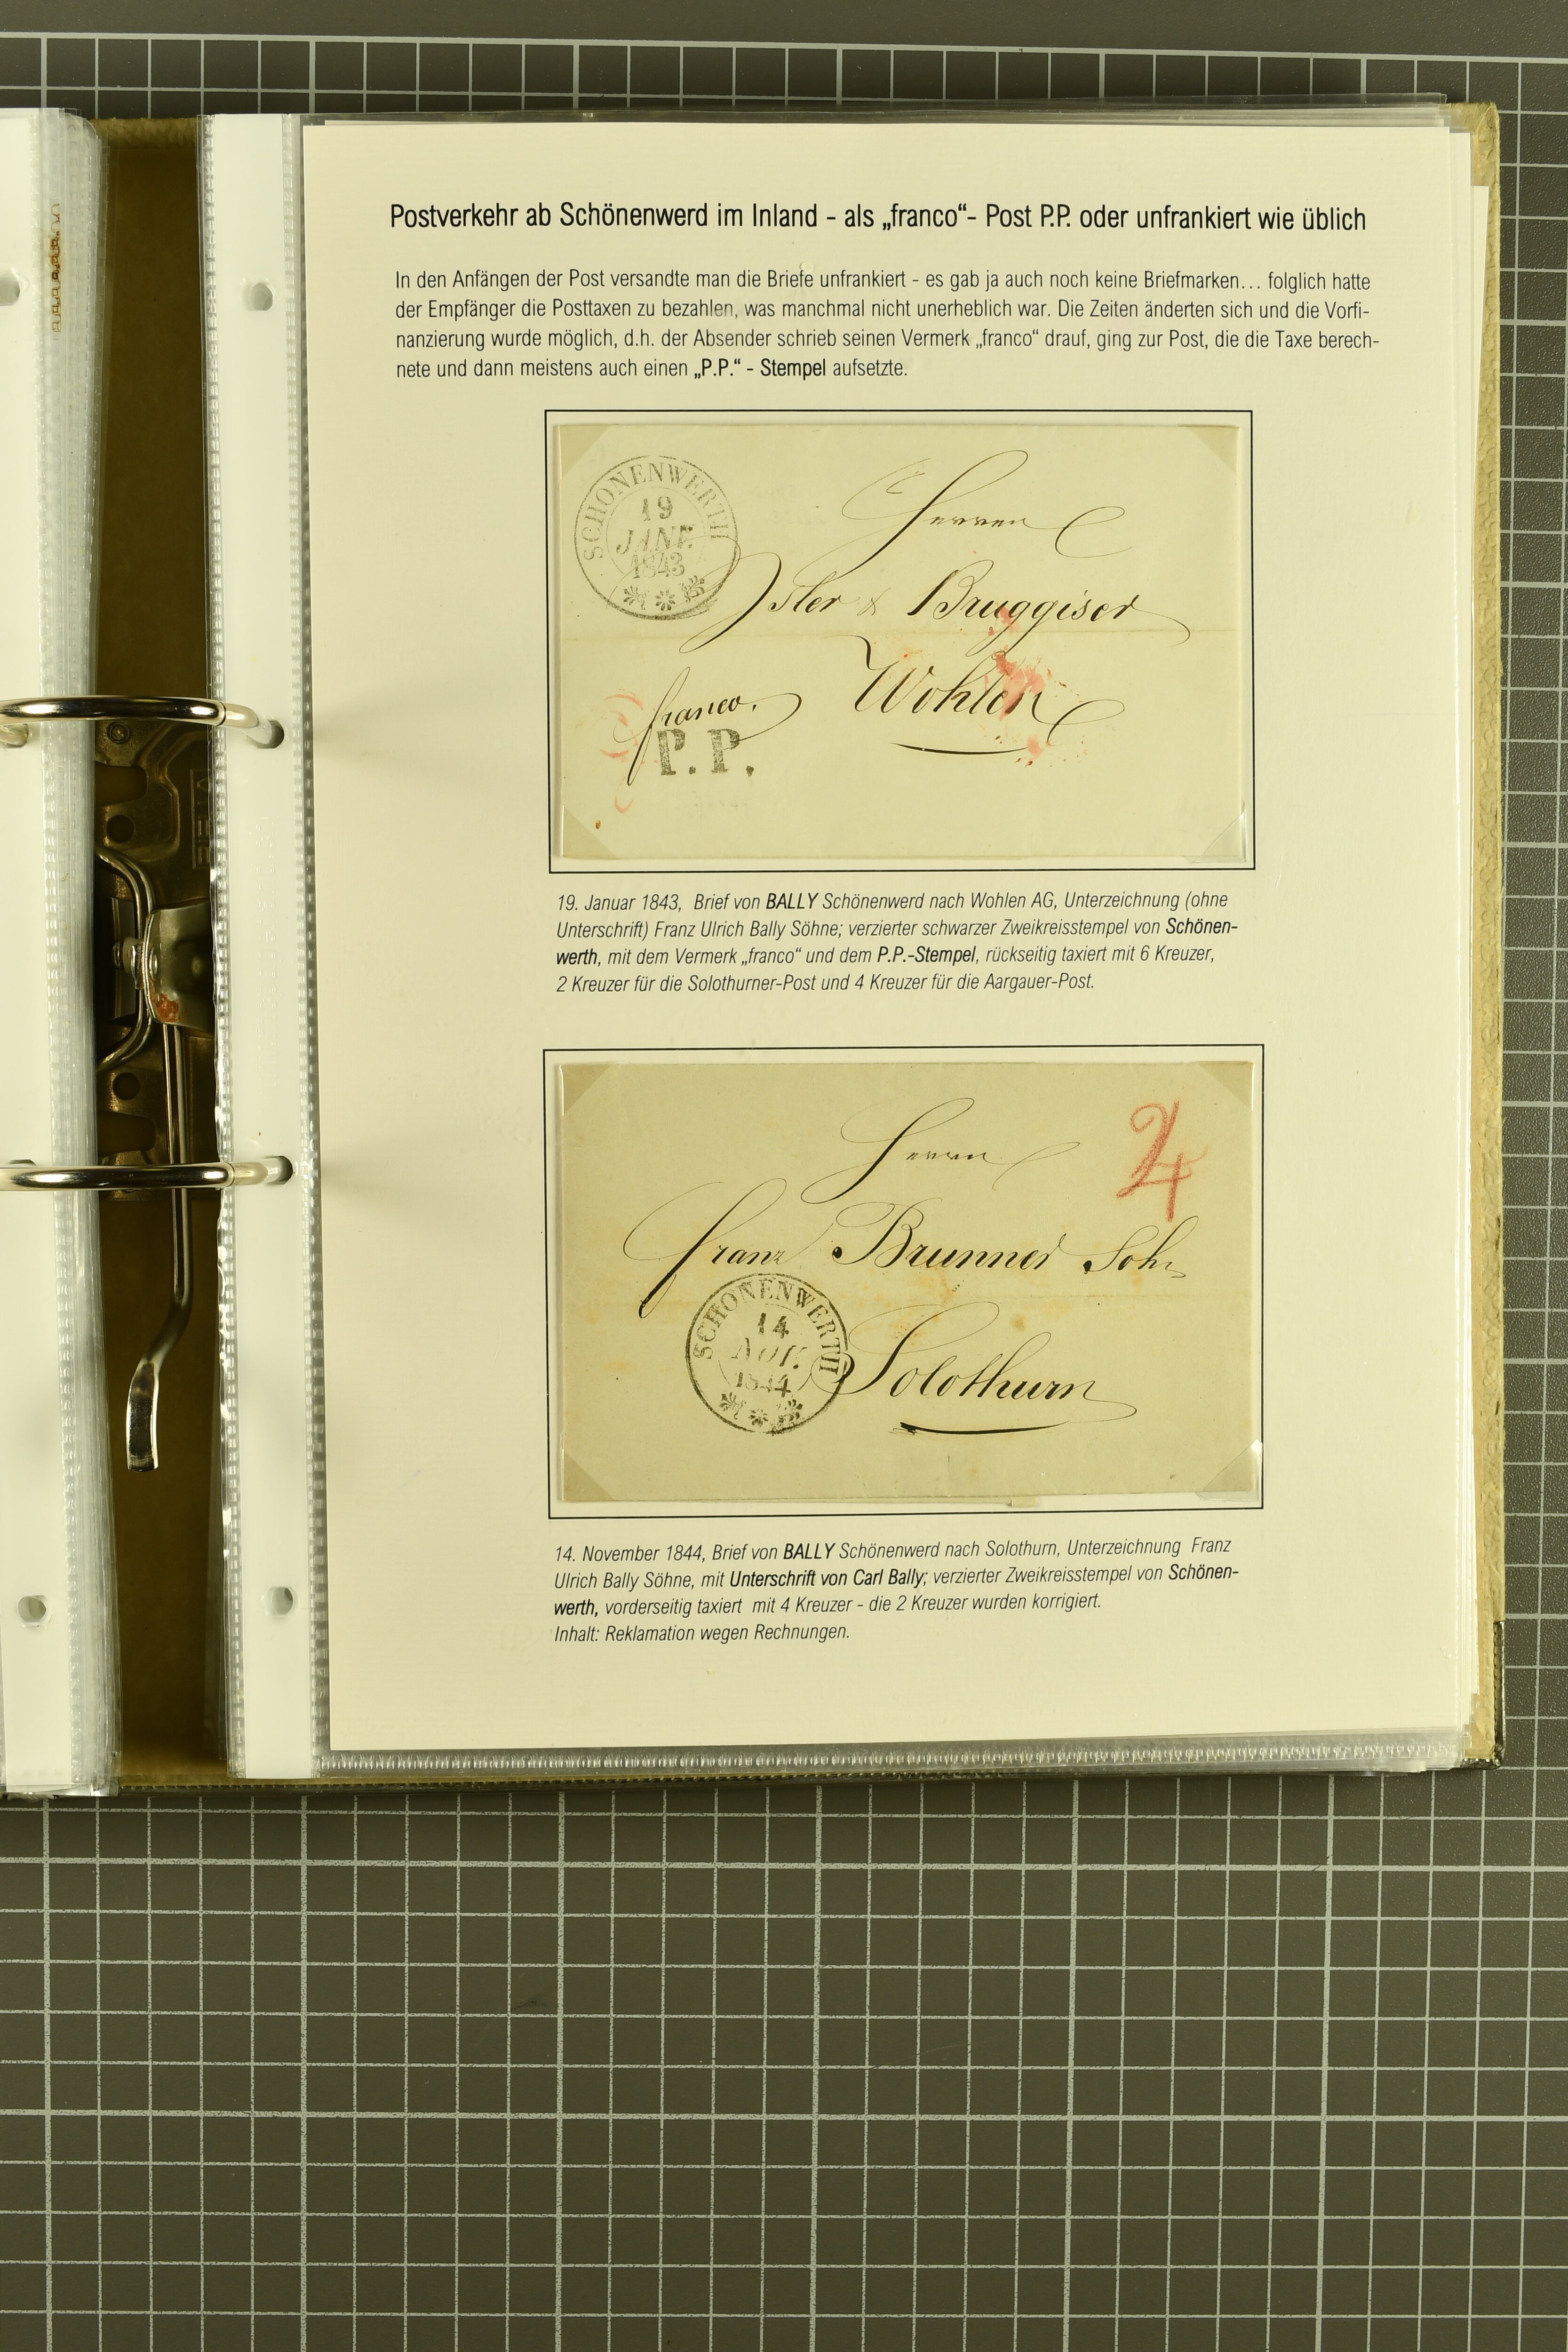 Postverkehr ab Schönenwerd im Inland - als „franco“- Post P.P. oder unfrankiert wie üblich
In den Anfängen der Post versandte man die Briefe unfrankiert - es gab ja auch noch keine Briefmarken... folglich hatte
der Empfänger die Posttaxen zu bezahlen, was manchmal nicht unerheblich war. Die Zeiten änderten sich und die Vorfi-
nanzierung wurde möglich, d.h. der Absender schrieb seinen Vermerk „franco“ drauf, ging zur Post, die die Taxe berech-
nete und dann meistens auch einen „P.P.“ - Stempel aufsetzte.
SCHONENWERTH
19
JANR
1843
Herren
Isler & Bruggiser
Wohlen
franco.
P.P.
19. Januar 1843, Brief von BALLY Schönenwerd nach Wohlen AG, Unterzeichnung (ohne
Unterschrift) Franz Ulrich Bally Söhne; verzierter schwarzer Zweikreisstempel von Schönen-
werth, mit dem Vermerk „franco“ und dem P.P.-Stempel, rückseitig taxiert mit 6 Kreuzer,
2 Kreuzer für die Solothurner-Post und 4 Kreuzer für die Aargauer-Post.
Herrn
Franz Brunner Sohn
Solothurn
SCHONENWERTH
14
NOV.
1844
14. November 1844, Brief von BALLY Schönenwerd nach Solothurn, Unterzeichnung Franz
Ulrich Bally Söhne, mit Unterschrift von Carl Bally; verzierter Zweikreisstempel von Schönen-
werth, vorderseitig taxiert mit 4 Kreuzer - die 2 Kreuzer wurden korrigiert.
Inhalt: Reklamation wegen Rechnungen.